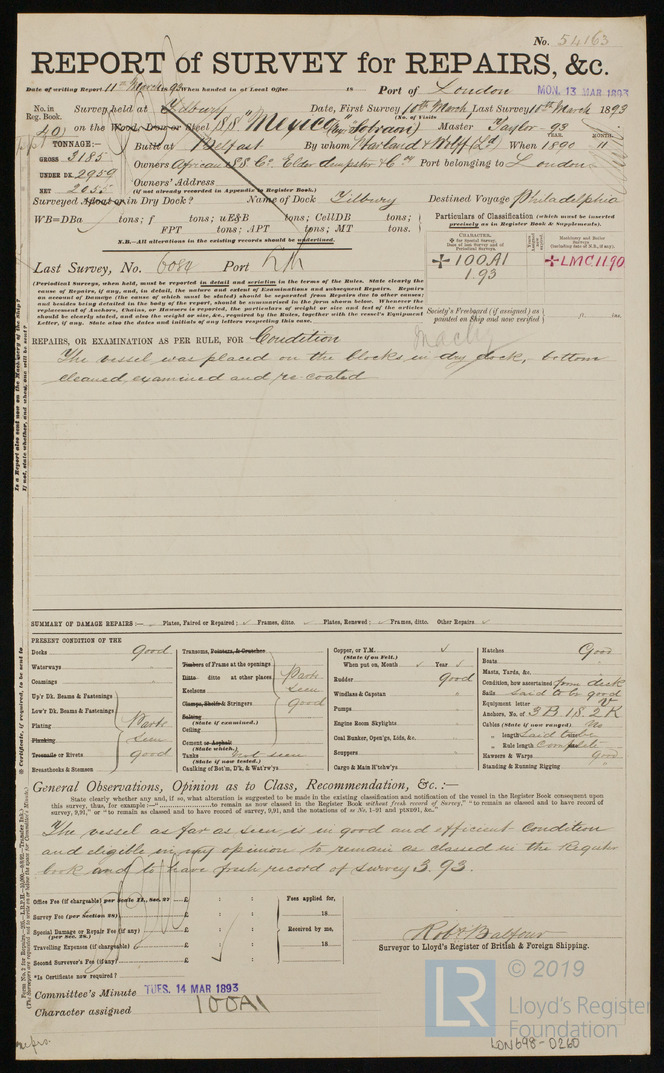 No. 54163
REPORT of SURVEY for REPAIRS, &c.
Date of writing Report 11th March 1893 When handed in at Local Office 18 Port of London
MON. 13 MAR 1893
No. in Reg. Book. Survey held at Tilbury Date, First Survey 10th March Last Survey 10th March 1893
(No. of Visits
on the Wood, Iron or Steel SS "Mexico" Sobraon) Master Taylor - 93
TONNAGE:— Built at Belfast By whom Harland & Wolff (Ld) When 1890 11
YEAR. MONTH.
GROSS 3185 Owners African SS Co. Elder Dempster & Coy Port belonging to London
UNDER DK. 2959 Owners' Address
NET 2055 (if not already recorded in Appendix to Register Book.)
Surveyed Afloat or in Dry Dock? Name of Dock Tilbury Destined Voyage Philadelphia
WB=DBa tons; f tons; uE&B tons; CellDB tons;
FPT tons; APT tons; MT tons.
N.B.—All alterations in the existing records should be underlined.
Particulars of Classification (which must be inserted precisely as in Register Book & Supplements).
CHARACTER.
100A1
1.93
LMC 11.90
Last Survey, No. 6084 Port
Society's Freeboard (if assigned) as painted on Ship and now verified
(Periodical Surveys, when held, must be reported in detail and seriatim in the terms of the Rules. State clearly the
cause of Repairs, if any, and, in detail, the nature and extent of Examinations and subsequent Repairs. Repairs
on account of Damage (the cause of which must be stated) should be separated from Repairs due to other causes;
and besides being detailed in the body of the report, should be summarised in the form shown below. Whenever the
replacement of Anchors, Chains, or Hawsers is reported, the particulars of weight or size and test of the articles
should be clearly stated, and also the weight or size, &c., required by the Rules, together with the vessel's Equipment
Letter, if any. State also the dates and initials of any letters respecting this case.
REPAIRS, OR EXAMINATION AS PER RULE, FOR Condition
The vessel was placed on the blocks in dry dock, bottom
cleaned examined and re-coated
SUMMARY OF DAMAGE REPAIRS:— Plates, Faired or Repaired; Frames, ditto. Plates, Renewed; Frames, ditto. Other Repairs
PRESENT CONDITION OF THE
Decks good
Waterways "
Coamings "
Up'r Dk. Beams & Fastenings
Low'r Dk. Beams & Fastenings
Plating Parts
Planking seen
Treenails or Rivets good
Breasthooks & Stemson
Transoms, Pointers, & Crutches
Timbers of Frame at the openings
Ditto ditto at other places Parts
Keelsons seen
Clamps, Shelfs & Stringers good
Salting
(State if examined.)
Ceiling
Cement or Asphalt
(State which.)
Tanks not seen
(State if now tested.)
Caulking of Bot'm, D'k, & Wat'rw'ys
Copper, or Y.M.
(State if on Felt.)
When put on, Month Year
Rudder good
Windlass & Capstan "
Pumps
Engine Room Skylights
Coal Bunker, Open'gs, Lids, &c.
Scuppers
Cargo & Main H'tchw'ys
Hatches Good
Boats "
Masts, Yards, &c. "
Condition, how ascertained from deck
Sails said to be good
Equipment letter V
Anchors, No. of 3B 1S 2K
Cables (State if now ranged) No
" length Said to be
" Rule length Complete
Hawsers & Warps Good
Standing & Running Rigging
General Observations, Opinion as to Class, Recommendation, &c. :—
State clearly whether any, and if so, what alteration is suggested to be made in the existing classification and notification of the vessel in the Register Book consequent upon
this survey, thus, for example:— to remain as now classed in the Register Book without fresh record of Survey," "to remain as classed and to have record of
survey, 9,91," or "to remark as classed and to have record of survey, 9,91, and the notations of
The vessel as far as seen is in good and efficient condition
and eligible in my opinion to remain as classed in the Register
book and to have fresh record of survey 3.93.
Office Fee (if chargeable) per Scale 11., Sec. 27 £ : : Fees applied for,
Survey Fee (per Section 28) £ : : 18
Special Damage or Repair Fee (if any) £ : : Received by me,
(per Sec. 28.)
Travelling Expenses (if chargeable) £ : : 18
Second Surveyor's Fee (if any) £ : :
*Is Certificate now required?
Robt Balfour
Surveyor to Lloyd's Register of British & Foreign Shipping.
Committee's Minute TUES. 14 MAR 1893
Character assigned 100A1
LR
© 2019
Lloyd's Register
Foundation
LDN698-0260